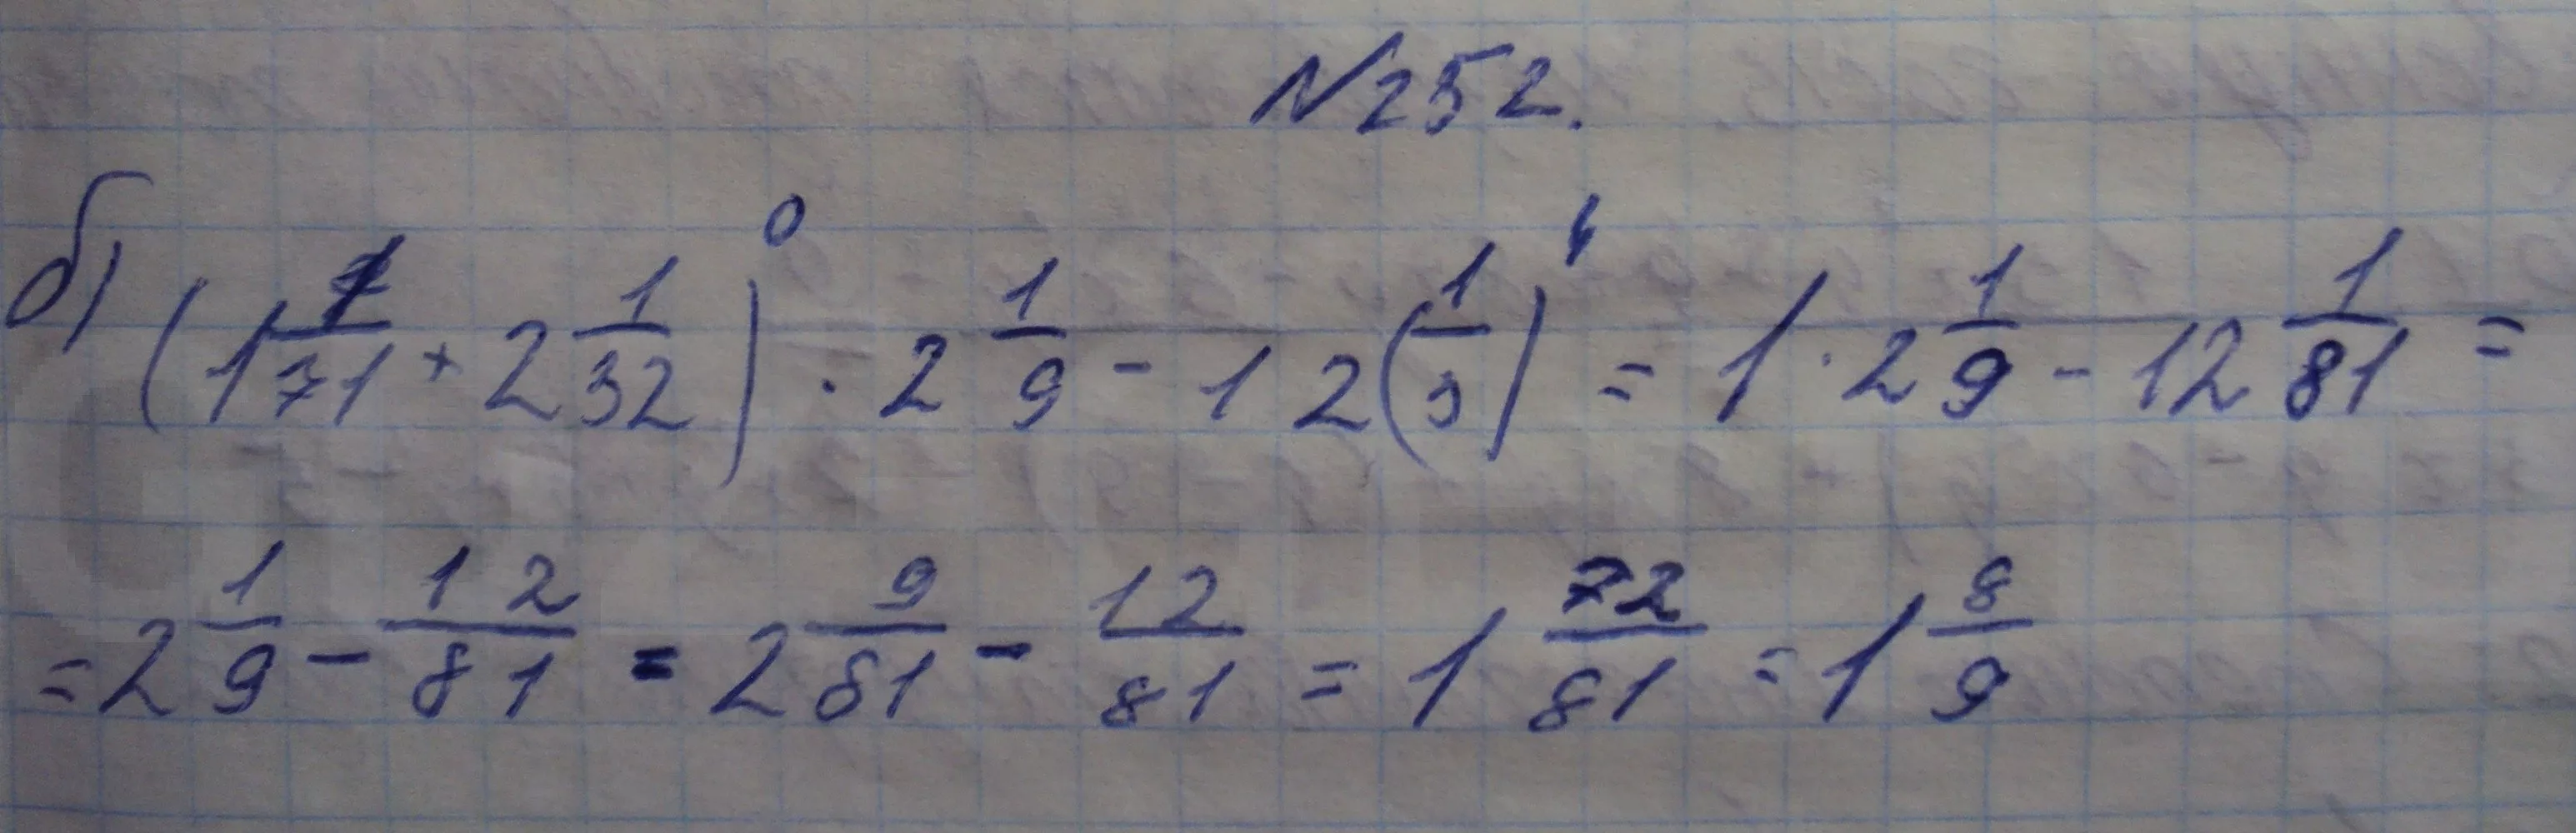 N252.
б) (1 1/71 + 2 1/32)^0 · 2 1/9 - 12(1/3)^4 = 1 · 2 1/9 - 12 1/81 =
= 2 1/9 - 12/81 = 2 9/81 - 12/81 = 1 72/81 = 1 8/9